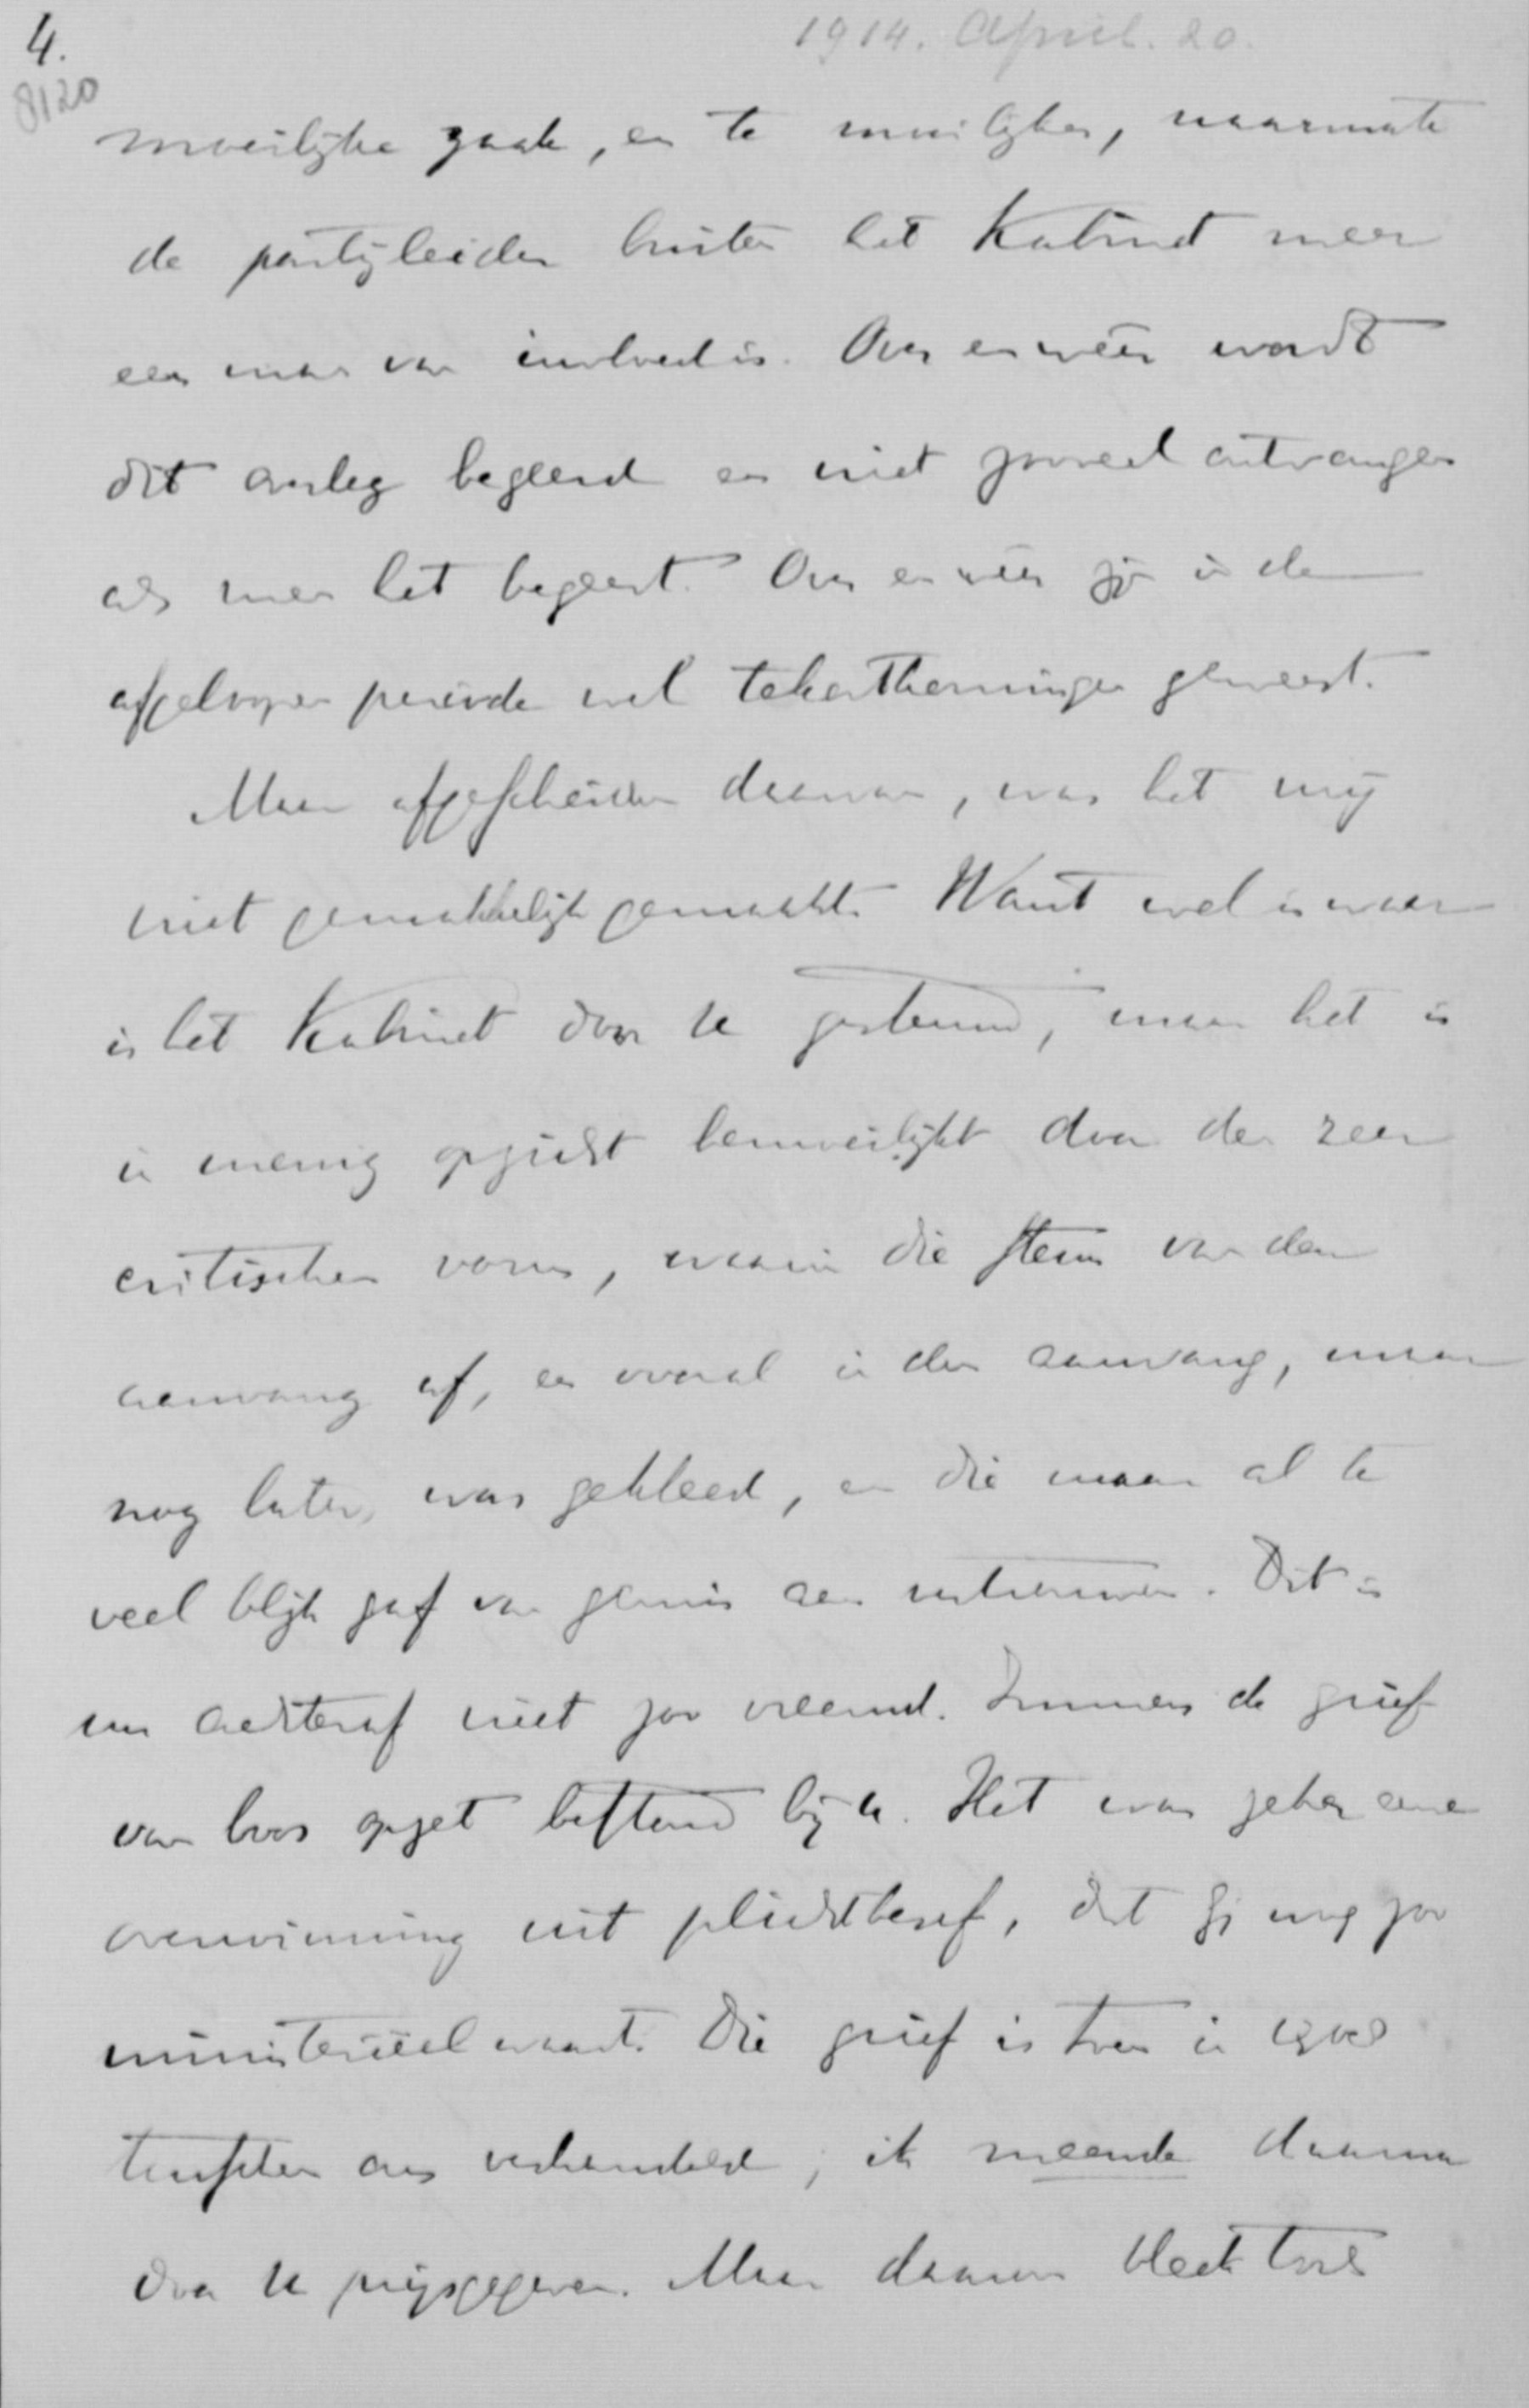 4.
1914. April. 20.
8120
moeilijke zaak, en te moeilijker, naarmate
de partijleider buiten het Kabinet meer
een man van invloed is. Over en weer wordt
dit overleg begeerd en niet zooveel ontvangen
als men het begeert. Over en weer zijn in de
afgeloopen periode wel tekortkomingen geweest.
Maar afgescheiden daarvan, was het mij
niet gemakkelijk gemaakt. Want wel is waar
is het Kabinet door U gesteund, maar het is
in menig opzicht bemoeilijkt door den zeer
critischen vorm, waarin die steun van den
aanvang af, en vooral in den aanvang, maar
nog later, was gekleed, en die maar al te
veel blijk gaf van gemis aan vertrouwen. Dit is
nu achteraf niet zoo vreemd. Immers de grief
van boos opzet bestond bij U. Het was zeker eene
overwinning uit plichtbesef, dat gij nog zoo
ministerieel waart. Die grief is toen in 1908
tusschen ons verhandeld; ik meende daarna
door U prijsgegeven. Maar daarna bleek toch